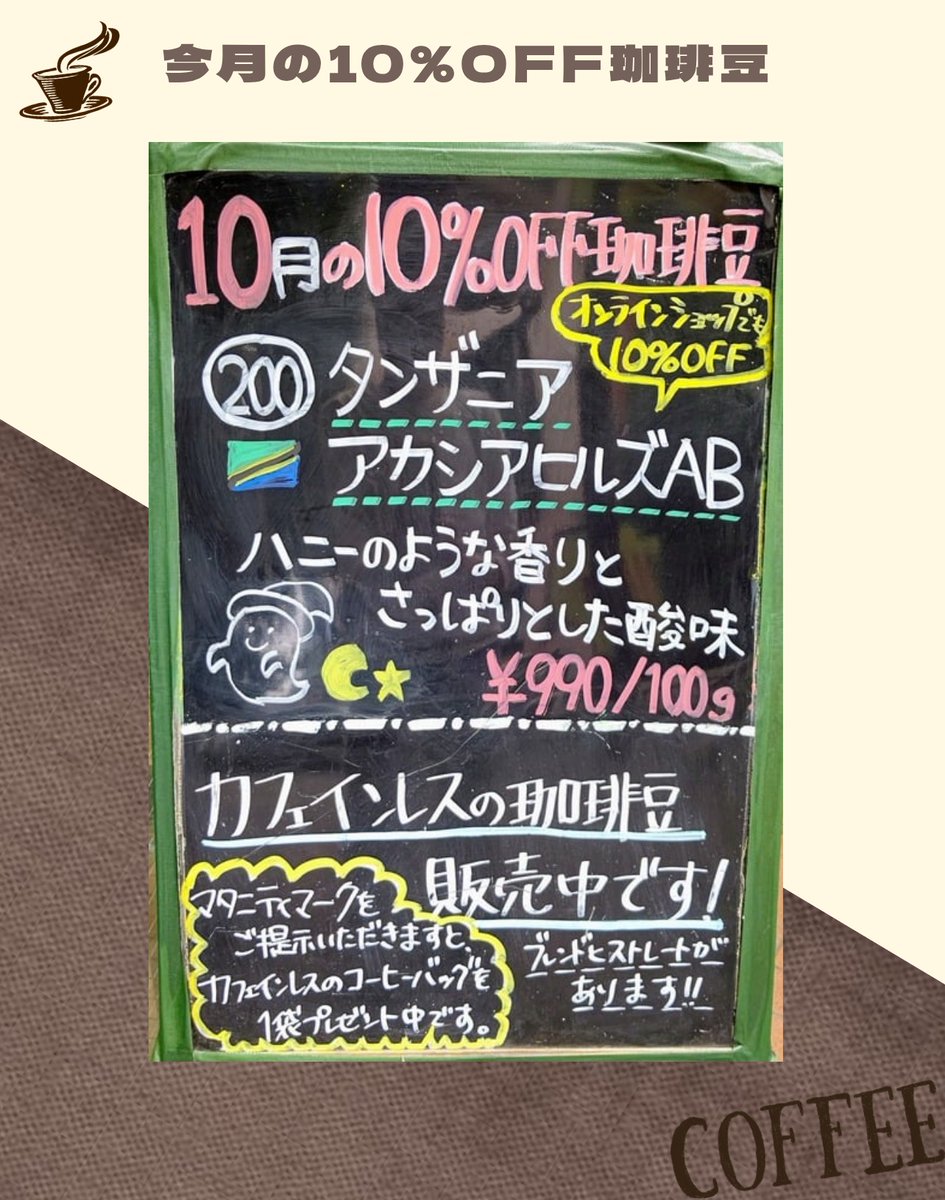 今月の10%OFF珈琲豆
10月の10%OFF珈琲豆
オンラインショップでも
10%OFF
200 タンザニア
アカシアヒルズAB
ハニーのような香りと
さっぱりとした酸味
¥990/100g
カフェインレスの珈琲豆
販売中です!
ブレンドとストレートが
あります!!
マタニティマークを
ご提示いただきますと、
カフェインレスのコーヒーバッグを
1袋プレゼント中です。
COFFEE